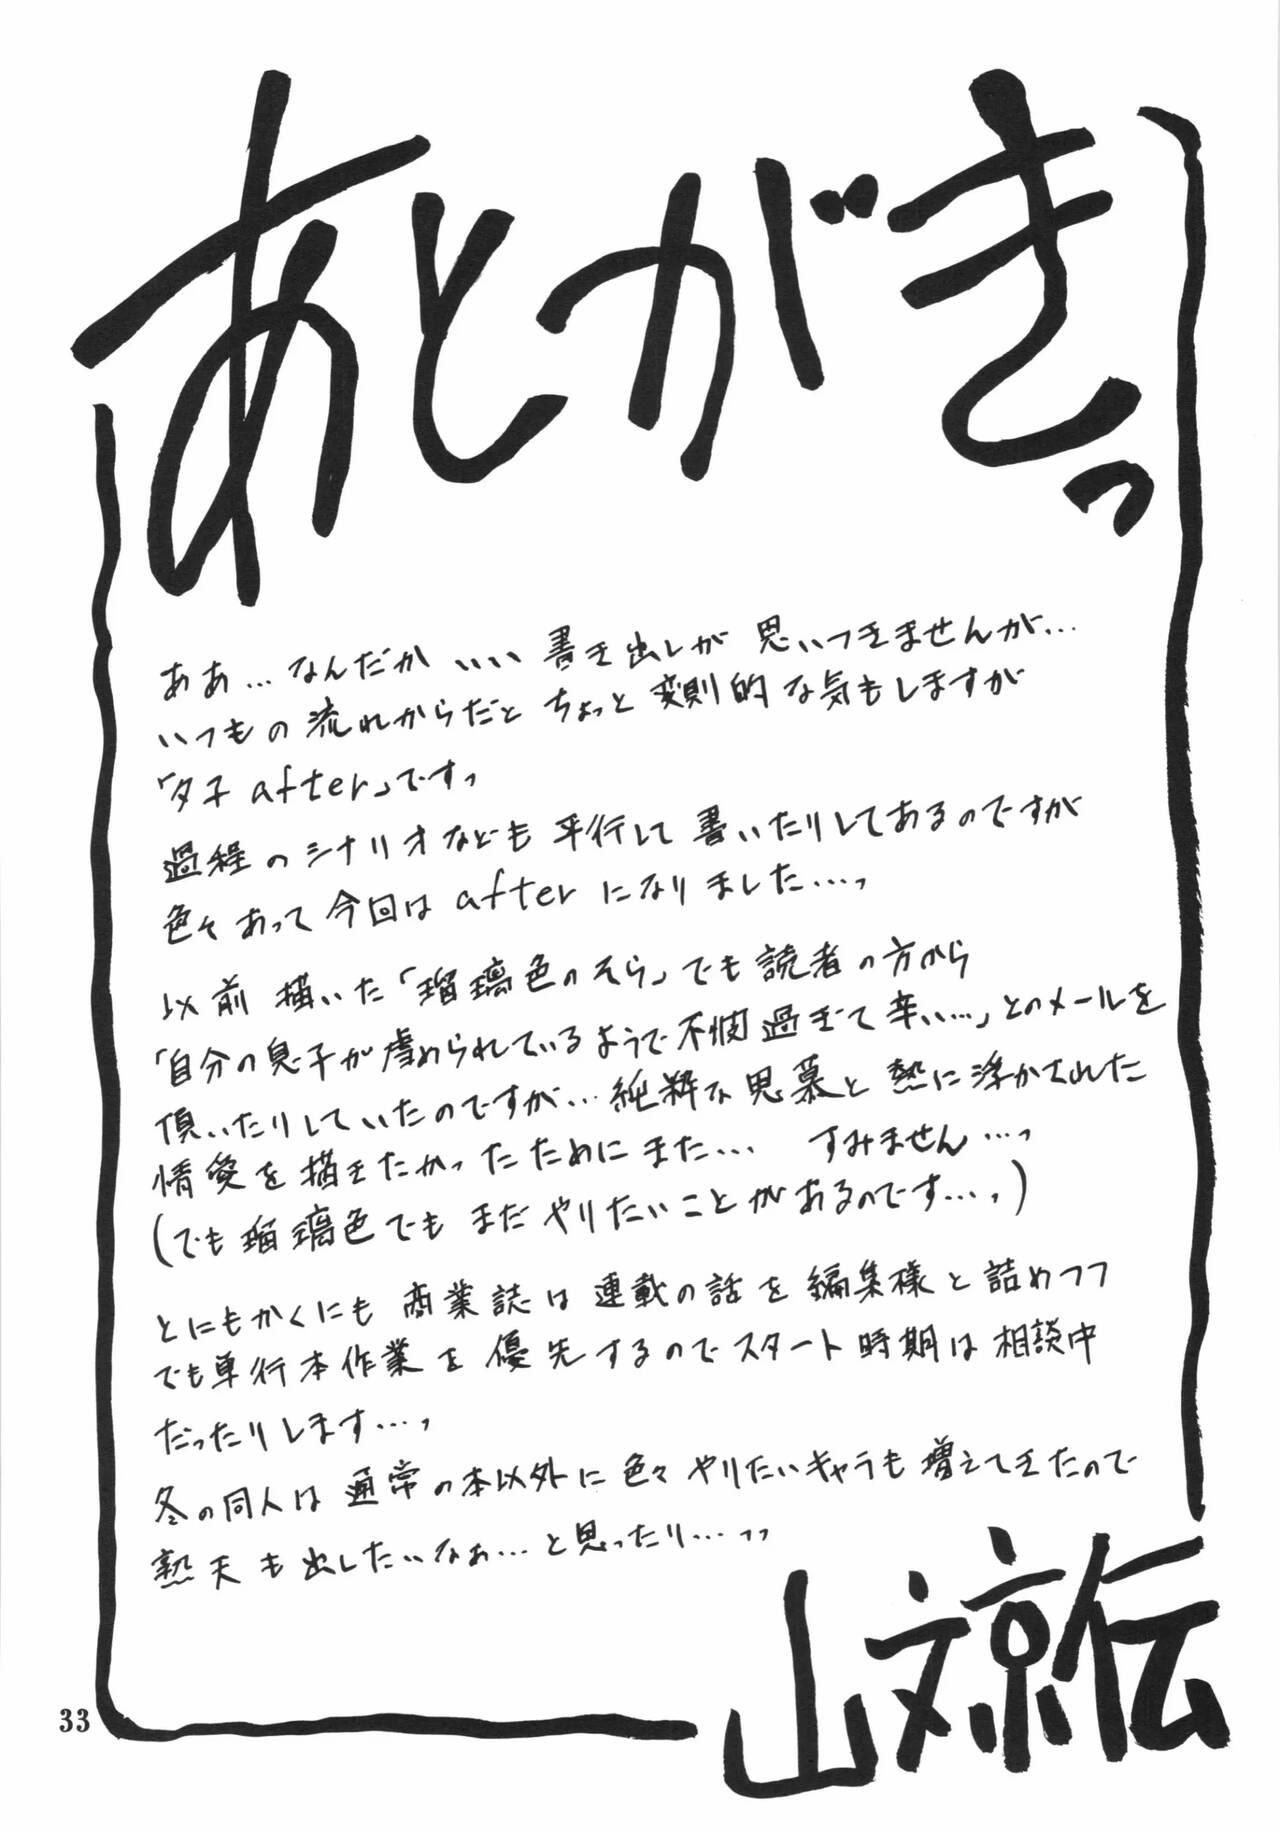 あとがきっ
ああ…なんだか いい 書き出しが 思いつきませんが…
いつもの流れからだと ちょっと 変則的な気もしますが
「夕子 after」ですっ
過程のシナリオなども 平行して 書いたりしてあるのですが
色々あって今回は after になりました…っ
以前 描いた「瑠璃色のそら」でも読者の方から
「自分の息子が虐められているようで不憫過ぎて辛い…」とのメールを
頂いたりしていたのですが…純粋な思慕と熱に浮かされた
情愛を描きたかったためにまた… すみません…っ
(でも瑠璃色でも まだやりたいことがあるのです…っ)
とにもかくにも 商業誌は連載の話を編集様と詰めつつ
でも単行本作業を優先するのでスタート時期は相談中
だったりします…っ
冬の同人は通常の本以外に色々やりたいキャラも増えてきたので
熱天も出したいなぁ…と思ったり…っっ
山文京伝
33